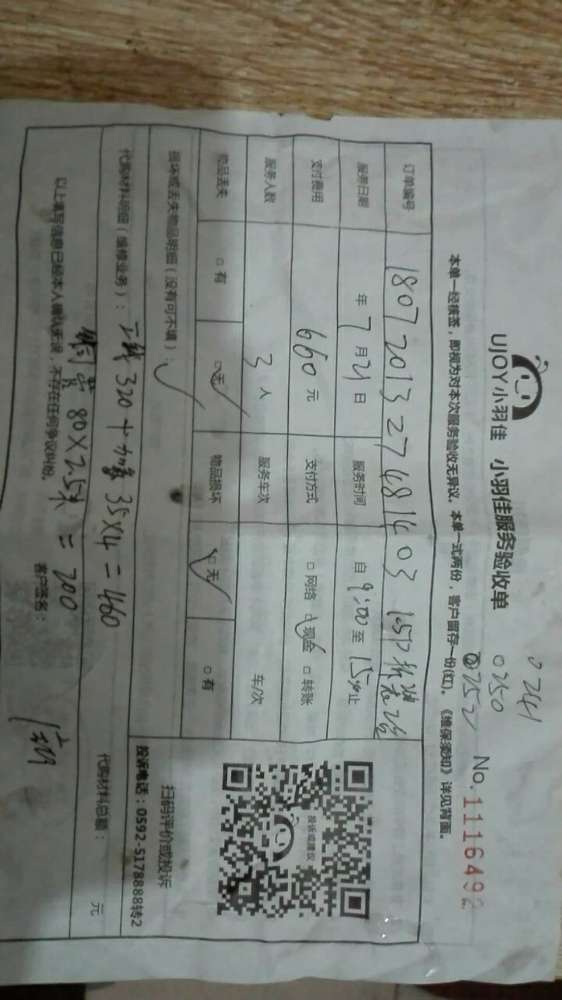 UJOY小羽佳 小羽佳服务验收单
0241
0250
0252
No.1116492
本单一经接签,即视为对本次服务验收无异议。本单一式两份,客户留存一份(红)。《维保须知》详见背面。
订单编号 1807201327481403 1.5P
服务日期 年7月21日 服务时间 自9:00至15 止
支付费用 660元 支付方式 □网络 □现金 □转账
服务人数 3人 服务车次 车/次
物品丢失 □有 □无 物品损坏 □无 □有
损坏或丢失物品明细(没有可不填):
扫码评价或投诉
投诉电话:0592-5178888转2
投诉或建议
代购材料明细(维修业务): 320+ 35×4=460
代购材料总额: 元
铜管80×2.5米=200
以上填写信息已经本人确认无误,不存在任何争议纠纷。
客户签名: